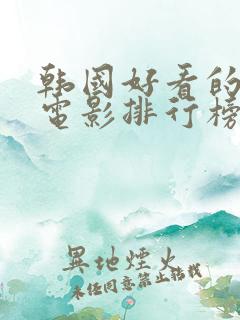 韩國好看的
電影排行榜
異地煙火
未经同意禁止转载